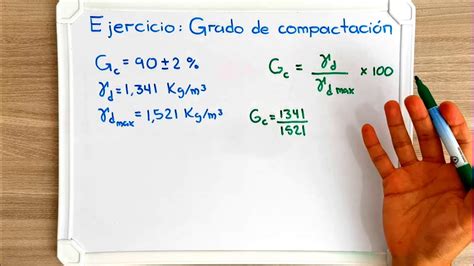 Ejercicio: Grado de compactación
Gc = 90 ± 2 %
γd = 1,341 Kg/m³
γd max = 1,521 Kg/m³
Gc = γd / γd max × 100
Gc = 1341 / 1521